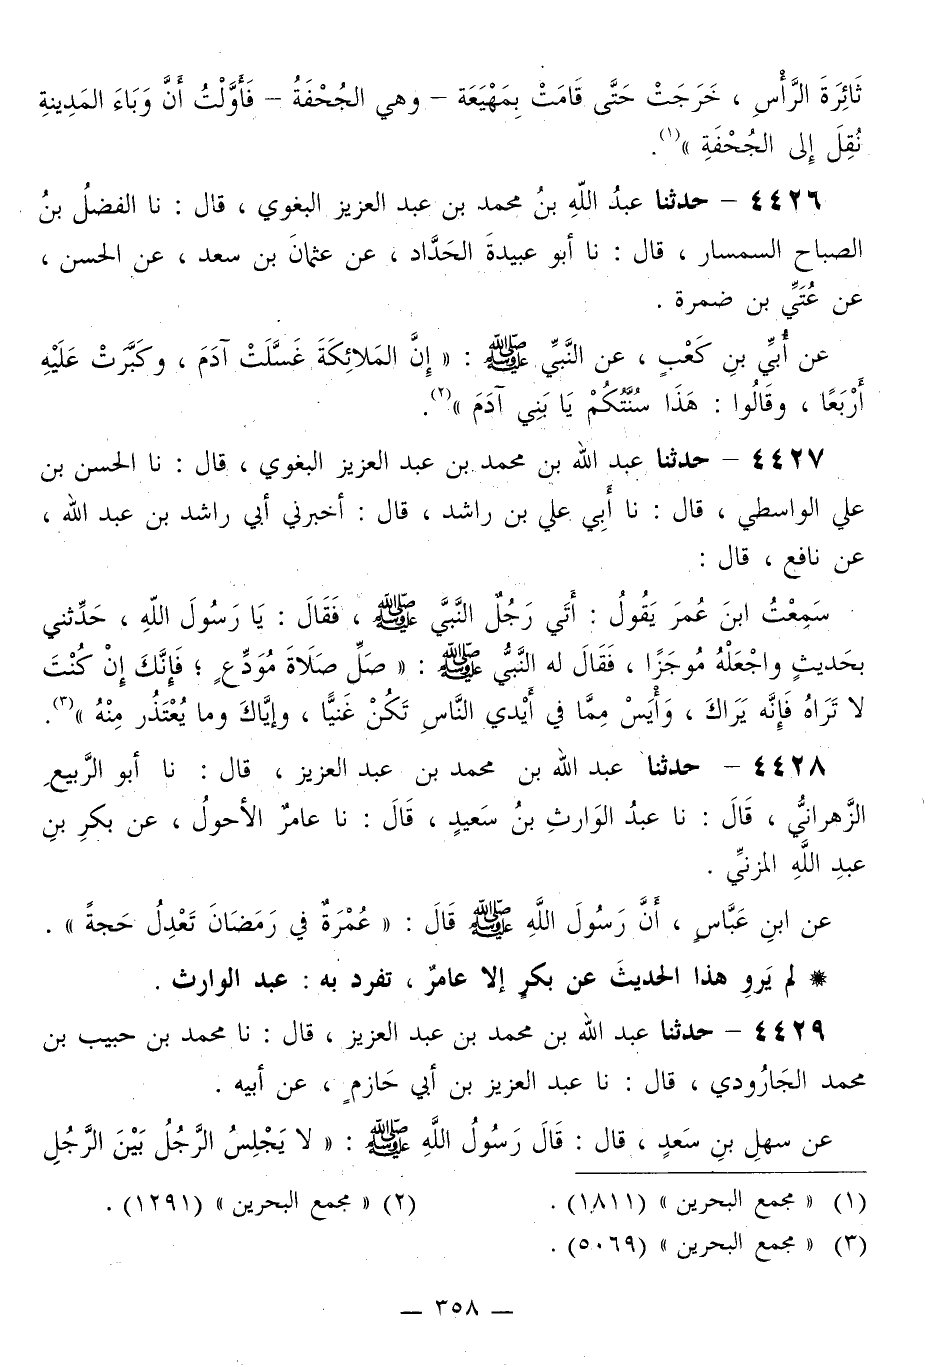 ثَائِرَةَ الرَّأْسِ ، خَرَجَتْ حَتَّى قَامَتْ بِمَهْيَعَة – وهي الجُحْفَةُ – فَأَوَّلْتُ أَنَّ وَبَاءَ المَدِينةِ
نُقِلَ إِلى الجُحْفَةِ »(١).
٤٤٢٦ – حدثنا عبدُ اللَّهِ بنُ محمد بن عبد العزيز البغوي ، قال : نا الفضلُ بنُ
الصباح السمسار ، قال : نا أبو عبيدةَ الحَدَّاد ، عن عثمانَ بن سعد ، عن الحسن ،
عن عُتَيِّ بن ضمرة .
عن أُبيِّ بنِ كَعْبٍ ، عن النَّبيِّ ﷺ : « إِنَّ المَلائِكَةَ غَسَّلَتْ آدَمَ ، وكَبَّرَتْ عَلَيْهِ
أَرْبَعًا ، وقَالُوا : هَذَا سُنَّتُكُمْ يَا بَنِي آدَمَ »(٢).
٤٤٢٧ – حدثنا عبد الله بن محمد بن عبد العزيز البغوي ، قال : نا الحسن بن
علي الواسطي ، قال : نا أَبِي علي بن راشد ، قال : أخبرني أبي راشد بن عبد الله ،
عن نافع ، قال :
سَمِعْتُ ابنَ عُمرَ يَقُولُ : أَتَي رَجُلٌ النَّبيَّ ﷺ ، فَقَالَ : يَا رَسُولَ اللَّهِ ، حَدِّثني
بحَديثٍ واجْعَلْهُ مُوجَزًا ، فَقَالَ له النَّبيُّ ﷺ : « صَلِّ صَلَاةَ مُوَدِّعٍ ؛ فَإِنَّكَ إِنْ كُنْتَ
لا تَرَاهُ فَإِنَّه يَرَاكَ ، وَأْيَسْ مِمَّا في أَيْدي النَّاسِ تَكُنْ غَنيًّا ، وإيَّاكَ وما يُعْتَذُر مِنْهُ »(٣).
٤٤٢٨ – حدثنا عبد الله بن محمد بن عبد العزيز ، قال : نا أبو الرَّبيعِ
الزَّهرانيُّ ، قَالَ : نا عبدُ الوَارثِ بنُ سَعيدٍ ، قَالَ : نا عامرٌ الأحولُ ، عن بكرِ بنِ
عبدِ اللَّهِ المزنيِّ .
عن ابنِ عَبَّاسٍ ، أَنَّ رَسُولَ اللَّهِ ﷺ قَالَ : « عُمْرَةٌ في رَمَضَانَ تَعْدِلُ حَجةً » .
* لم يَروِ هذا الحديثَ عن بكرٍ إلا عامرٌ ، تفرد به : عبد الوارث .
٤٤٢٩ – حدثنا عبد الله بن محمد بن عبد العزيز ، قال : نا محمد بن حبيب بن
محمد الجَارُودي ، قال : نا عبد العزيز بن أبي حَازمٍ ، عن أبيه .
عن سهلِ بنِ سَعدٍ ، قال : قَالَ رَسُولُ اللَّهِ ﷺ : « لا يَجْلِسُ الرَّجُلُ بَيْنَ الرَّجُلِ
(١) « مجمع البحرين » (١٨١١) . (٢) « مجمع البحرين » (١٢٩١) .
(٣) « مجمع البحرين » (٥٠٦٩) .
— ٣٥٨ —